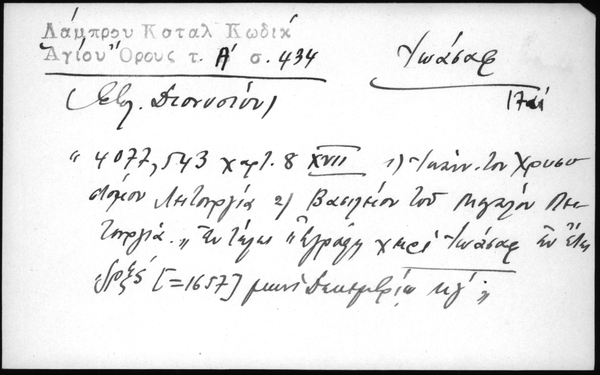 Λάμπρου Καταλ Κωδίκ
Ἁγίου Ὄρους τ. Α΄ σ. 434
Ἰωάσαφ
(Μον. Διονυσίου)
17
" 4077, 543 χαρτ. 8 XVII 1) Ἰωάν. του Χρυσο
στόμου Λειτουργία 2) Βασιλείου τοῦ Μεγάλου Λει
τουργία. „ Ἐν τέλει "Ἐγράφη χειρὶ Ἰωάσαφ ἐν ἔτει
͵ζρξς΄ [=1657] μηνὶ Δεκεμβρίῳ κγ΄ „